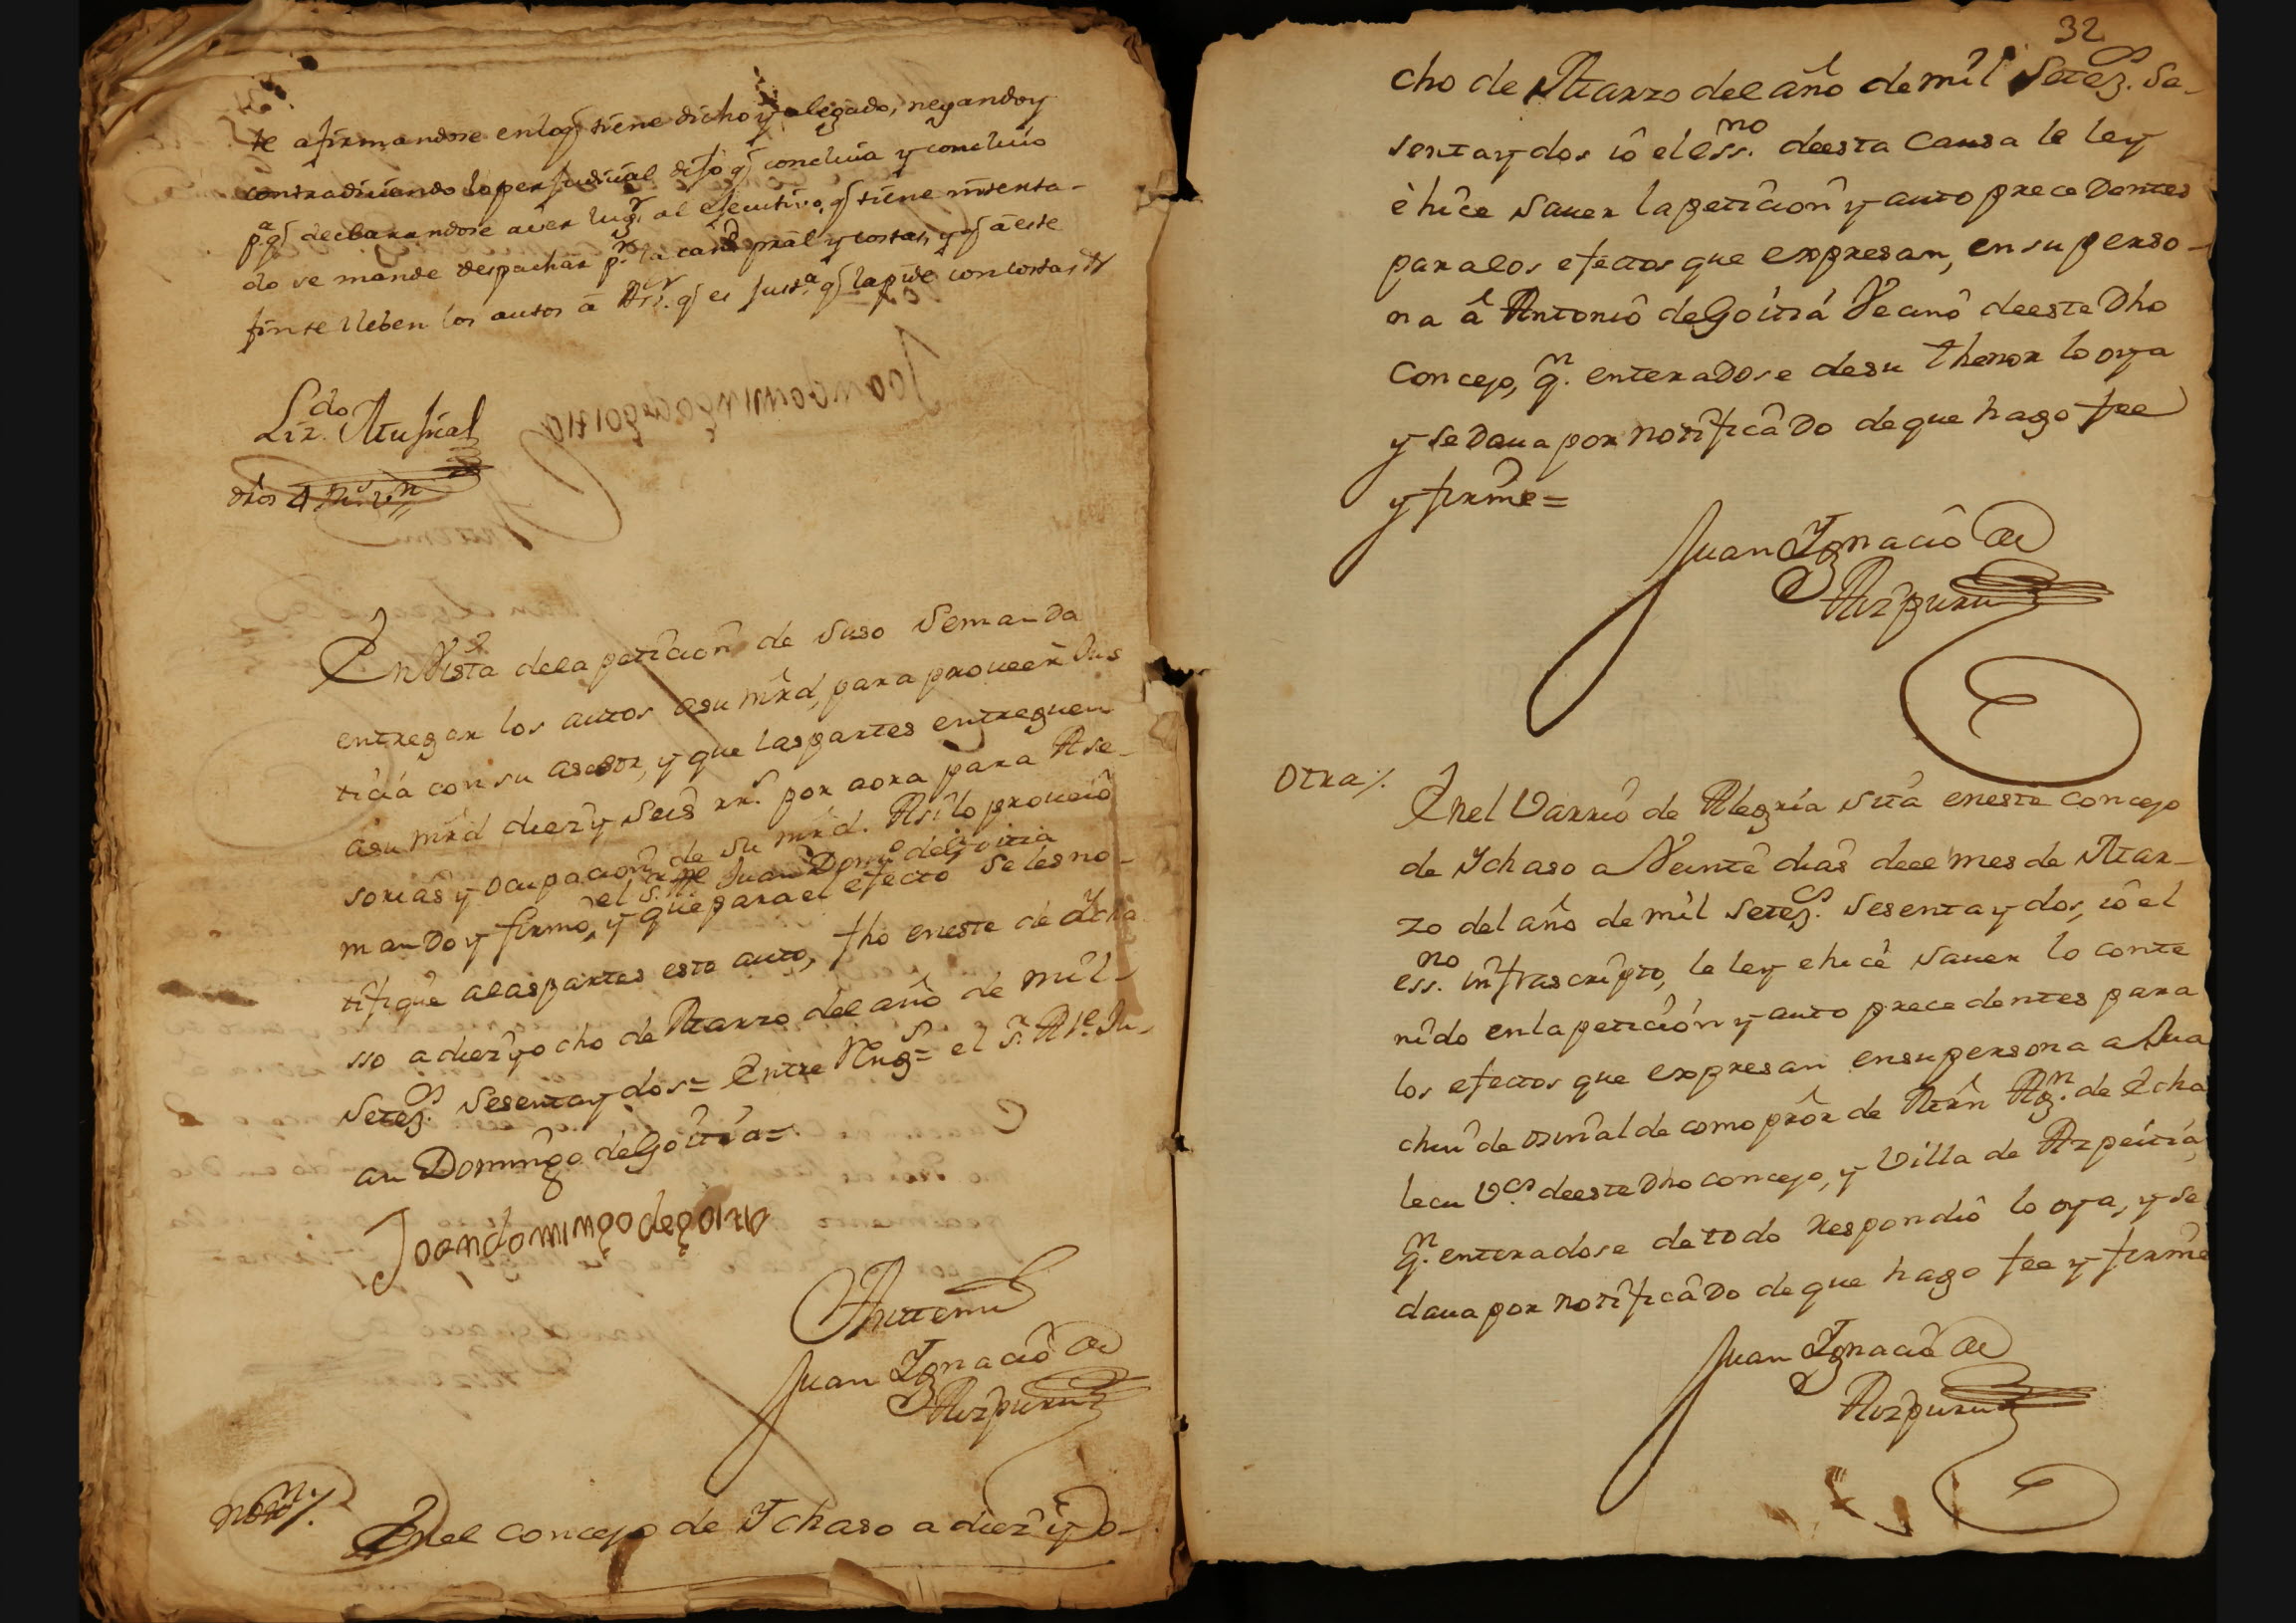 te afirmandose enloq̃ tiene dicho y alegado, negando y
contradiciendo lo perjudicial dijo q̃ concluia y concluio
p.ª q̃ declarandose aver lug.r al ejecutivo, q̃ tiene intenta-
do se mande despachar p.r la cantd pral y costas, y q̃ a este
fin se lleben los autos ā q̃ es just.ª q̃ la pide con costas &
Liz.do Mujica
dros 4
En Vista dela peticion de Suso Semanda
entregar los autos asu mrd, para proueer Jus
ticia con su asesor, y que las partes entreguen
asu mrd diez y Seis rr.s por aora para Ase-
sorias y ocupacion de su mrd. Asi lo proueio
el S.r Al.e Juan Dom.o de Goitia
mando y firmo, y que para el efecto se les no-
tifique alas partes este auto, fho eneste de Ycha
sso a diez y ocho de Marzo del año de mil
Setez.s Sesenta y dos= Entre Rengs= el S.r Al.e Ju-
an Domingo de Goitia=
Joan domingo de goitia
Antemi
Juan Ygnacio de
Aizpuru
noton/.
Enel concejo de Ychaso a diez y o-
32
cho de Marzo del año de mil Setez.s Se-
senta y dos io el ess.no de esta Causa le ley
è hice Sauer la peticion y auto precedentes
para los efectos que expresan, en su perso-
na â Antonio de Goitiá Vecino de este Dho
Concejo, q.n enteradose de su thenor lo oya
y se Daua por notificado de que hago fee
y firme=
Juan Ygnacio de
Aizpuru
Otra/.
Enel Varrio de Alegria Sita eneste concejo
de Ychaso a Veinte dias deel mes de Mar-
zo del año de mil Setez.s Sesenta y dos, io el
ess.no infrascripto, le ley e hice Sauer lo conte
nido en la peticion y auto precedentes para
los efectos que expresan en su persona a Jua
chin de osinalde como pror de Mrn Rz.n de Echa
lecu V.os de este Dho concejo, y Villa de Azpeitia,
q.n enteradose de todo Respondio lo oya, y se
daua por notificado de que hago fee y firme
Juan Ygnacio de
Aizpuru